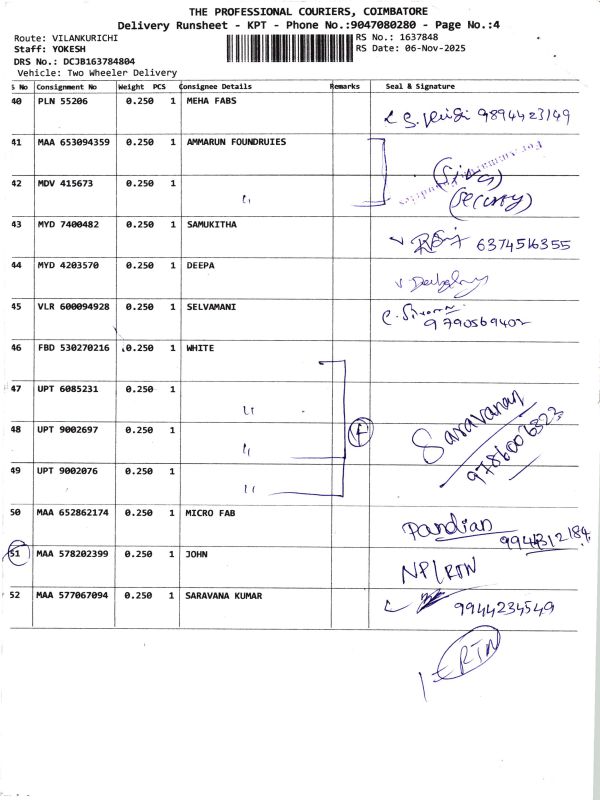 THE PROFESSIONAL COURIERS, COIMBATORE
Delivery Runsheet - KPT - Phone No.:9047080280 - Page No.:4
Route: VILANKURICHI
RS No.: 1637848
Staff: YOKESH
RS Date: 06-Nov-2025
DRS No.: DCJB163784804
Vehicle: Two Wheeler Delivery
S No Consignment No Weight PCS Consignee Details Remarks Seal & Signature
40 PLN 55206 0.250 1 MEHA FABS 9894423149
41 MAA 653094359 0.250 1 AMMARUN FOUNDRUIES
42 MDV 415673 0.250 1 " (Siva) (Security)
43 MYD 7400482 0.250 1 SAMUKITHA 6374516355
44 MYD 4203570 0.250 1 DEEPA
45 VLR 600094928 0.250 1 SELVAMANI 9790569402
46 FBD 530270216 0.250 1 WHITE
47 UPT 6085231 0.250 1 "
48 UPT 9002697 0.250 1 " 4 Saravanan 9786006323
49 UPT 9002076 0.250 1 "
50 MAA 652862174 0.250 1 MICRO FAB Pandian 9944312184
51 MAA 578202399 0.250 1 JOHN NP/RTN
52 MAA 577067094 0.250 1 SARAVANA KUMAR 9944234549
1 - RTN